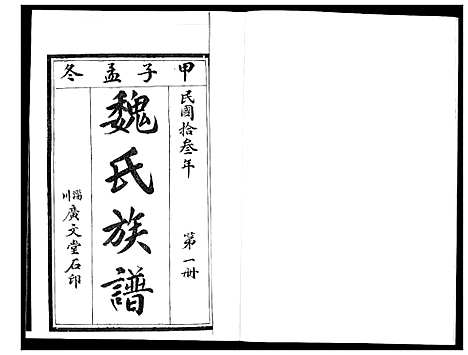 甲子孟冬
民國拾叁年
第一冊
魏氏族譜
淄川廣文堂石印